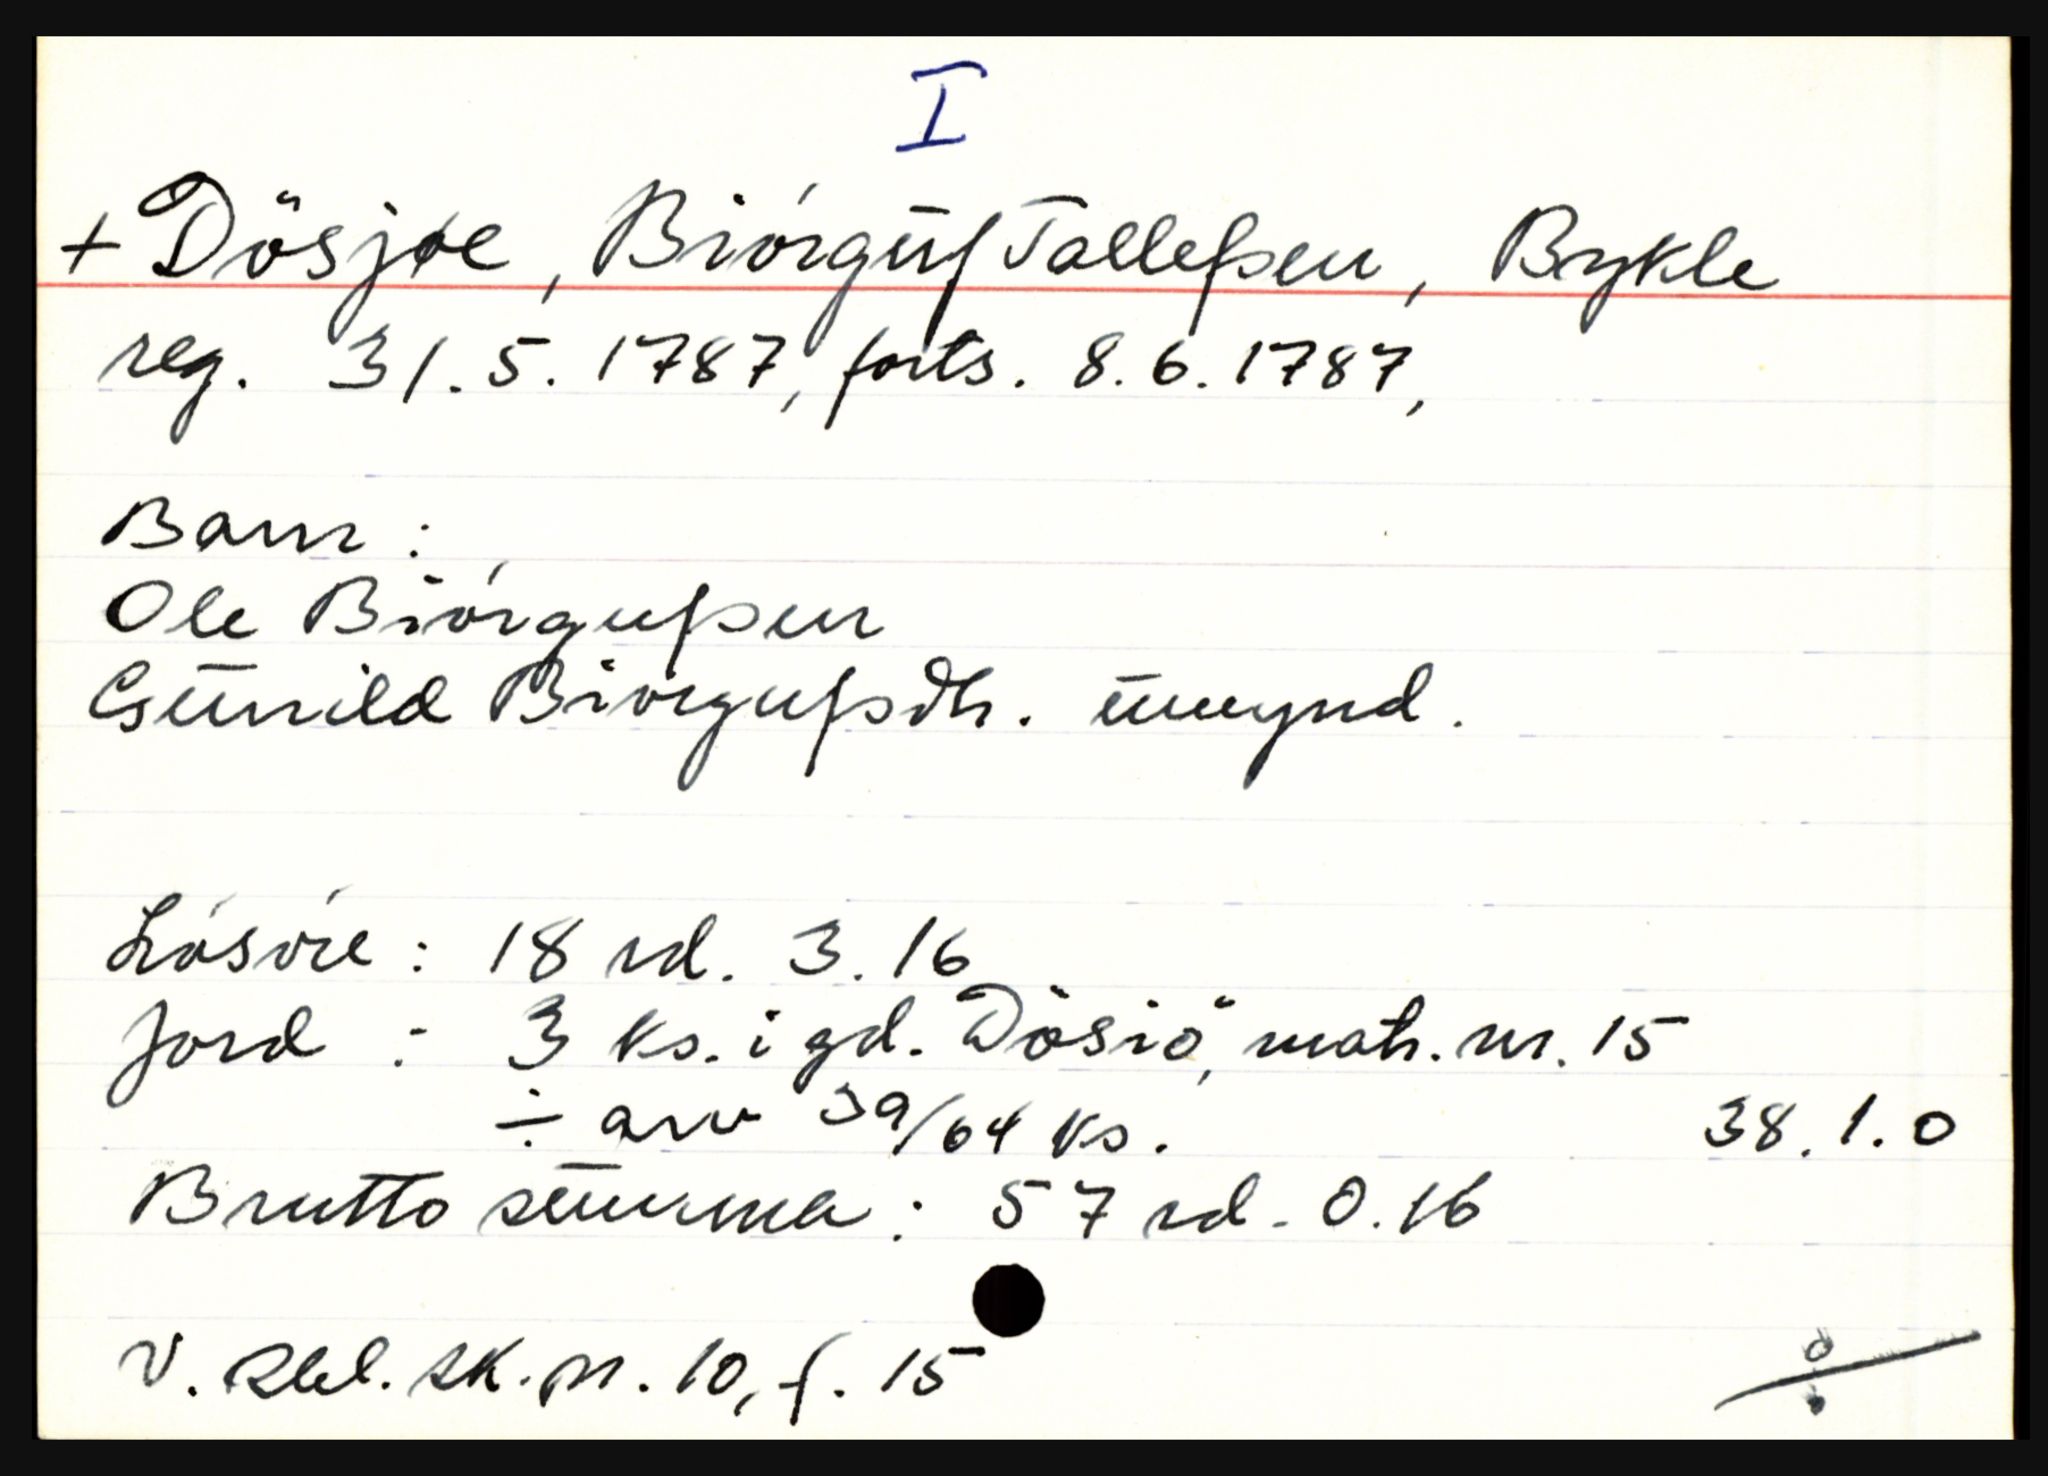 I
+ Dösjøe, Biórgūf Tallefsen, Bykle
reg. 31.5.1787, forts. 8.6.1787,
Barn:
Ole Biórgufsen
Gūnild Biórgufsdtr. ūmynd.
Lósóre: 18 rd. 3.16
Jord: 3 ks. i gd. Dösiö, matr. nr. 15
÷ arv 39/64 ks. 38.1.0
Brutto sūmma: 57 rd. 0.16
V. Rbl. sk. pr. 10, f. 15